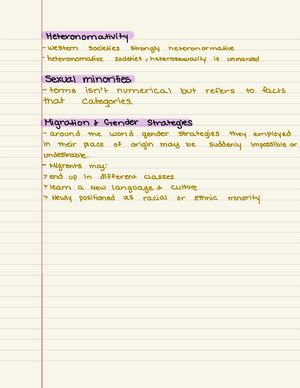 Heteronormativity
- western societies strongly heteronormative
- heteronomative societies, heterosexuality is unmarked
Sexual minorities
- terms isn't numerical but refers to facts
that categories.
Migration & Gender Strategies
- around the world gender strategies they employed
in their place of origin may be suddenly impossible or
undesirable.
- Migrants may:
> end up in different classes
> learn a new language & culture
> Newly positioned as racial or ethnic minority